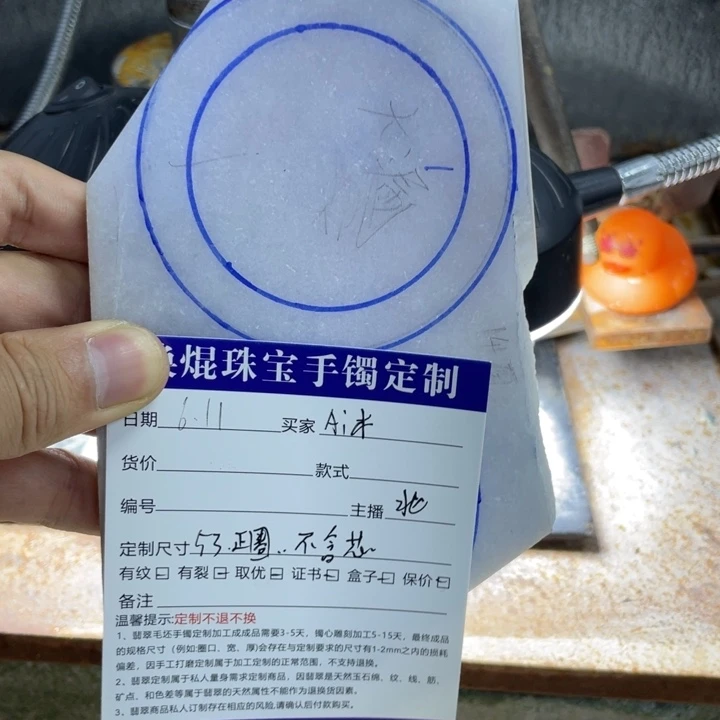 焜珠宝手镯定制
日期 6.11 买家 Ai米
货价 款式
编号 主播 北
定制尺寸 53.正圈..不含芯
有纹 有裂 取优 证书 盒子 保价
备注
温馨提示:定制不退不换
1、翡翠毛坯手镯定制加工成成品需要3-5天,镯心雕刻加工5-15天,最终成品
的规格尺寸(例如:圈口、宽、厚)会存在与定制要求的尺寸有1-2mm之内的损耗
偏差,因手工打磨定制属于加工定制的正常范围,不支持退换。
2、翡翠定制属于私人量身需求定制商品,因翡翠是天然玉石棉、纹、线、筋、
矿点、和色差等属于翡翠的天然属性不能作为退换货因素。
3、翡翠商品私人订制存在相应的风险,请确认后付款购买。